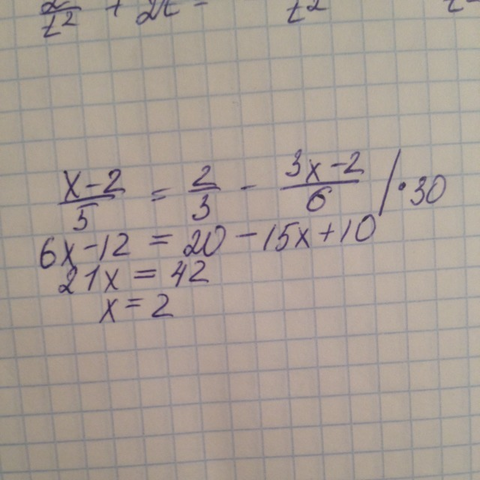 t² + 2t - t²
x-2/5 = 2/3 - 3x-2/6 /·30
6x-12 = 20-15x+10
21x = 42
x=2